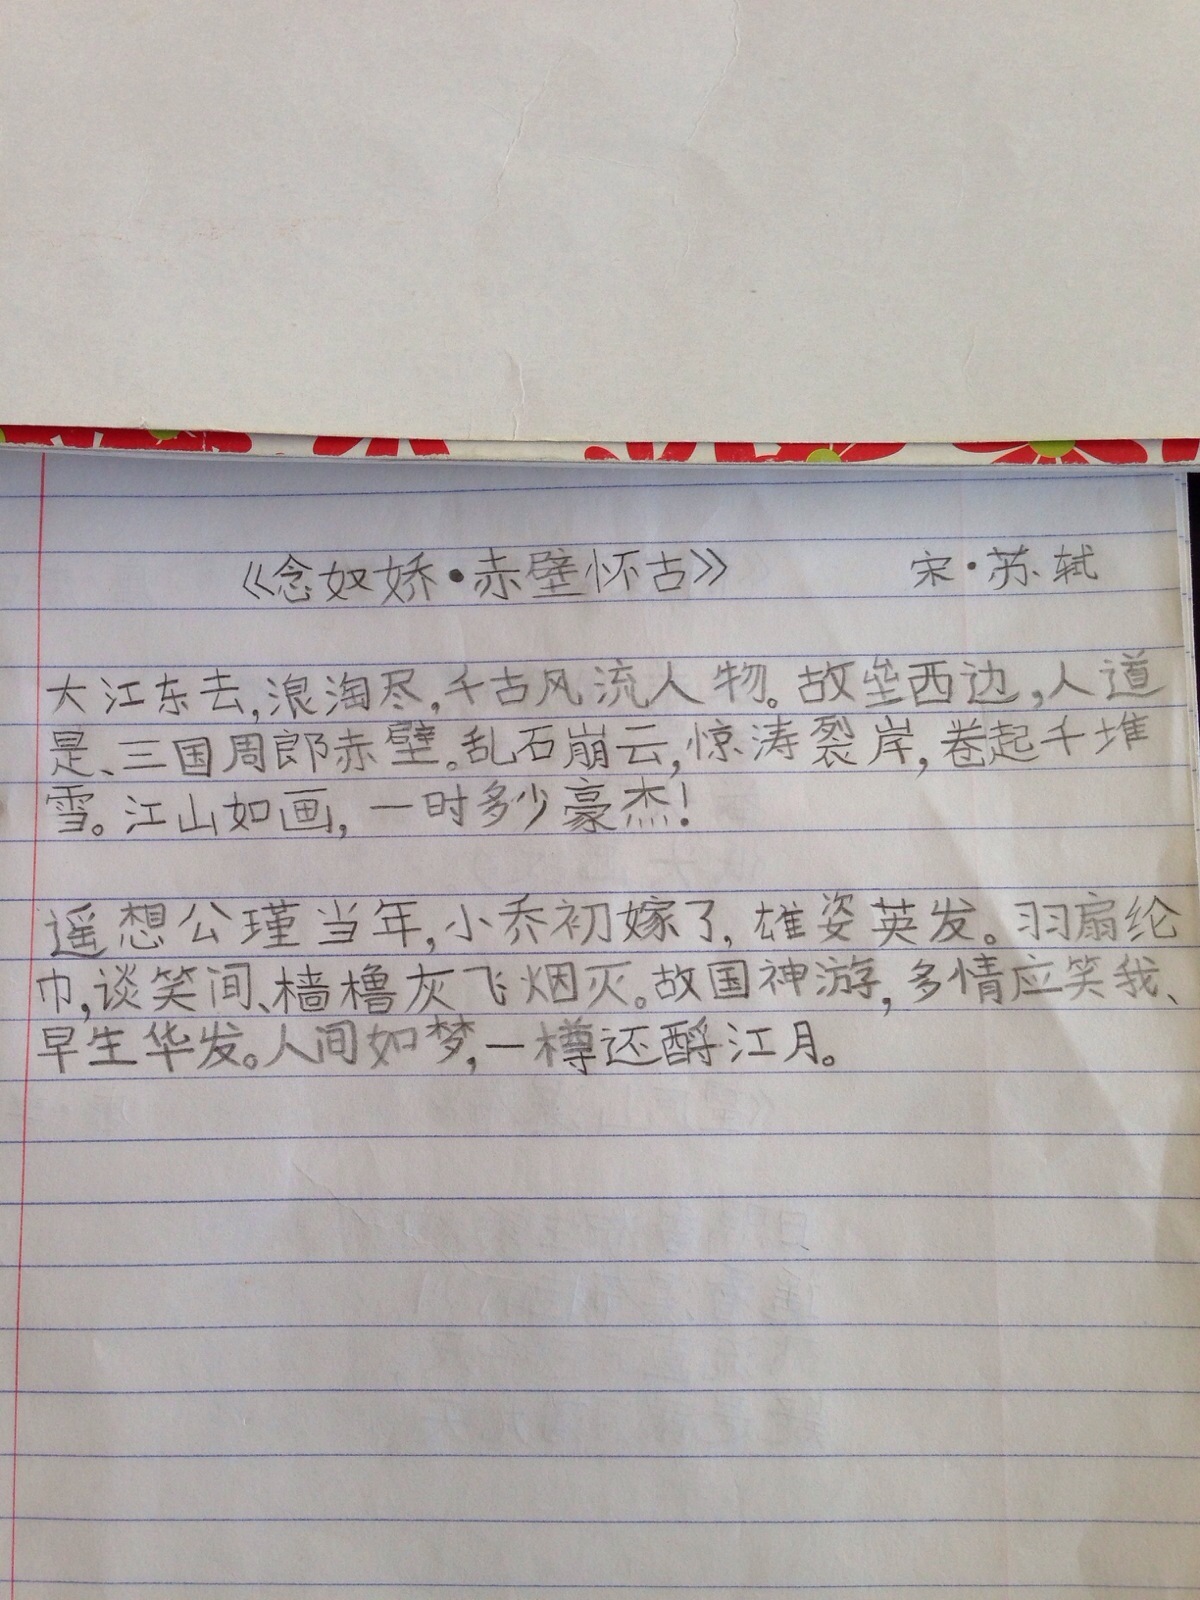 《念奴娇·赤壁怀古》 宋·苏轼
大江东去,浪淘尽,千古风流人物。故垒西边,人道
是、三国周郎赤壁。乱石崩云,惊涛裂岸,卷起千堆
雪。江山如画,一时多少豪杰!
遥想公瑾当年,小乔初嫁了,雄姿英发。羽扇纶
巾,谈笑间、樯橹灰飞烟灭。故国神游,多情应笑我、
早生华发。人间如梦,一樽还酹江月。